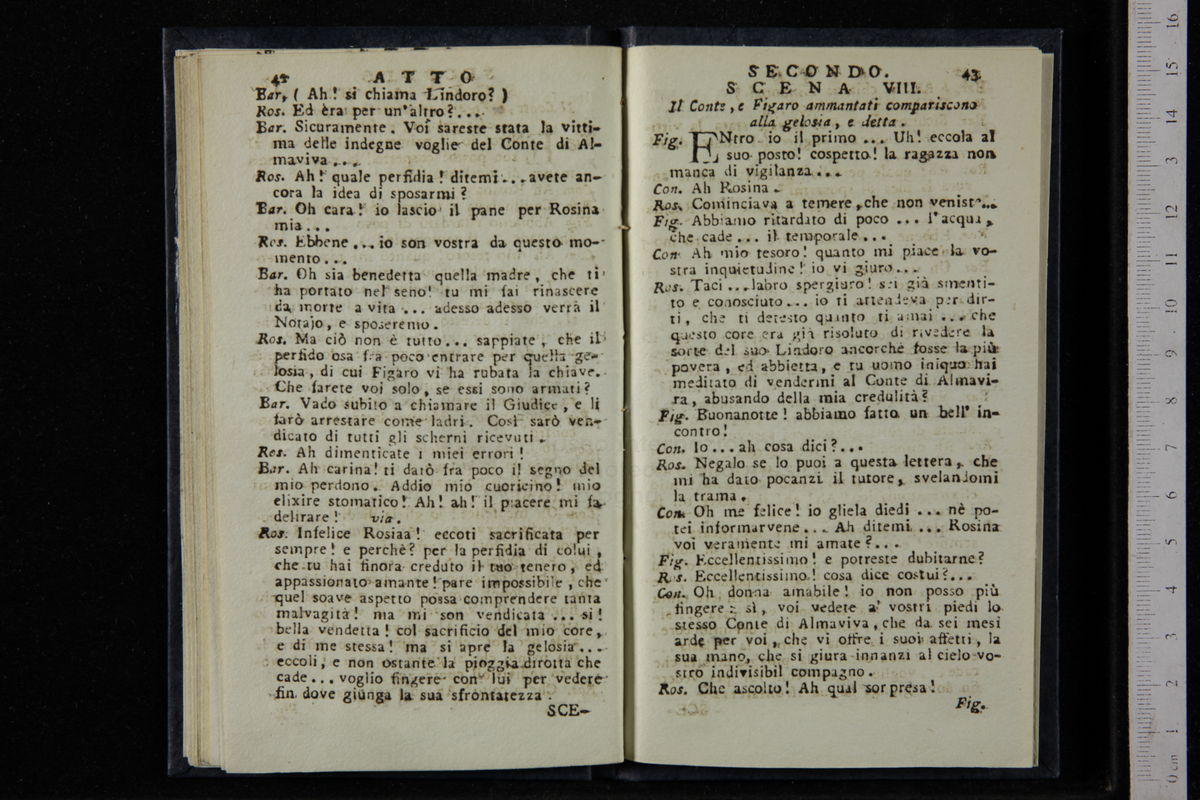 42 ATTO
Bar. ( Ah! si chiama Lindoro? )
Ros. Ed èra per un'altro?...
Bar. Sicuramente. Voi sareste stata la vitti-
ma delle indegne voglie del Conte di Al-
maviva...
Ros. Ah! quale perfidia! ditemi... avete an-
cora la idea di sposarmi?
Bar. Oh cara! io lascio il pane per Rosina
mia...
Ros. Ebbene... io son vostra da questo mo-
mento...
Bar. Oh sia benedetta quella madre, che ti
ha portato nel seno! tu mi fai rinascere
da morte a vita... adesso adesso verrà il
Notajo, e sposeremo.
Ros. Ma ciò non è tutto... sappiate, che il
perfido osa fra poco entrare per quella ge-
losia, di cui Figaro vi ha rubata la chiave.
Che farete voi solo, se essi sono armati?
Bar. Vado subito a chiamare il Giudice, e li
farò arrestare come ladri. Così sarò ven-
dicato di tutti gli scherni ricevuti.
Ros. Ah dimenticate i miei errori!
Bar. Ah carina! ti darò fra poco il segno del
mio perdono. Addio mio cuoricino! mio
elixire stomatico! Ah! ah! il piacere mi fa
delirare! via.
Ros. Infelice Rosiaa! eccoti sacrificata per
sempre! e perchè? per la perfidia di colui,
che tu hai finora creduto il tuo tenero, ed
appassionato amante! pare impossibile, che
quel soave aspetto possa comprendere tanta
malvagità! ma mi son vendicata... si!
bella vendetta! col sacrificio del mio core,
e di me stessa! ma si apre la gelosia...
eccoli, e non ostante la pioggia dirotta che
cade... voglio fingere con lui per vedere
fin dove giunga la sua sfrontatezza.
SCE-
SECONDO. 43
SCENA VIII.
Il Conte, e Figaro ammantati compariscono
alla gelosia, e detta.
Fig. ENtro io il primo... Uh! eccola al
suo posto! cospetto! la ragazza non
manca di vigilanza...
Con. Ah Rosina.
Ros. Cominciava a temere, che non veniste...
Fig. Abbiamo ritardato di poco... l'acqua,
che cade... il temporale...
Con. Ah mio tesoro! quanto mi piace la vo-
stra inquietudine! io vi giuro...
Ros. Taci... labro spergiuro! sei già smenti-
to e conosciuto... io ti attendeva per dir-
ti, che ti detesto quanto ti amai... che
questo core era già risoluto di rivedere la
sorte del suo Lindoro ancorchè fosse la più
povera, ed abbietta, e tu uomo iniquo hai
meditato di vendermi al Conte di Almavi-
ra, abusando della mia credulità?
Fig. Buonanotte! abbiamo fatto un bell' in-
contro!
Con. Io... ah cosa dici?...
Ros. Negalo se lo puoi a questa lettera, che
mi ha dato pocanzi il tutore, svelandomi
la trama.
Con. Oh me felice! io gliela diedi... nè po-
tei informarvene... Ah ditemi... Rosina
voi veramente mi amate?...
Fig. Eccellentissimo! e potreste dubitarne?
Ros. Eccellentissimo! cosa dice costui?...
Con. Oh donna amabile! io non posso più
fingere: sì, voi vedete a' vostri piedi lo
stesso Conte di Almaviva, che da sei mesi
arde per voi, che vi offre i suoi affetti, la
sua mano, che si giura innanzi al cielo vo-
stro indivisibil compagno.
Ros. Che ascolto! Ah qual sorpresa!
Fig.
0 cm 1 2 3 4 5 6 7 8 9 10 11 12 13 14 15 16